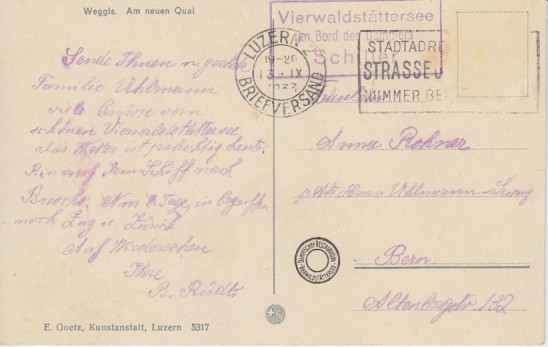 Weggis. Am neuen Quai
Vierwaldstättersee
An Bord des Dampfers
Schiller
LUZERN 2
19-20
13. IX
BRIEFVERSAND
STADTADRE
STRASSE U
NUMMER BE
Sende Ihnen u. geehrte
Familie Uhlmann
viele Grüsse vom
schönen Vierwaldstättersee
das Wetter ist prächtig heute.
Bin auf dem Schiff nach
Buochs. 8 Tage, in
noch Zug u. Zürich
Auf Wiedersehen
Ihre
B. Rüdts
Fräulein
Anna Rohner
Uhlmann
Bern
Altenbergstr 132
DAMPFSCHIFF RESTAURATION
VIERWALDSTÄTTERSEE
E. Goetz, Kunstanstalt, Luzern 5317